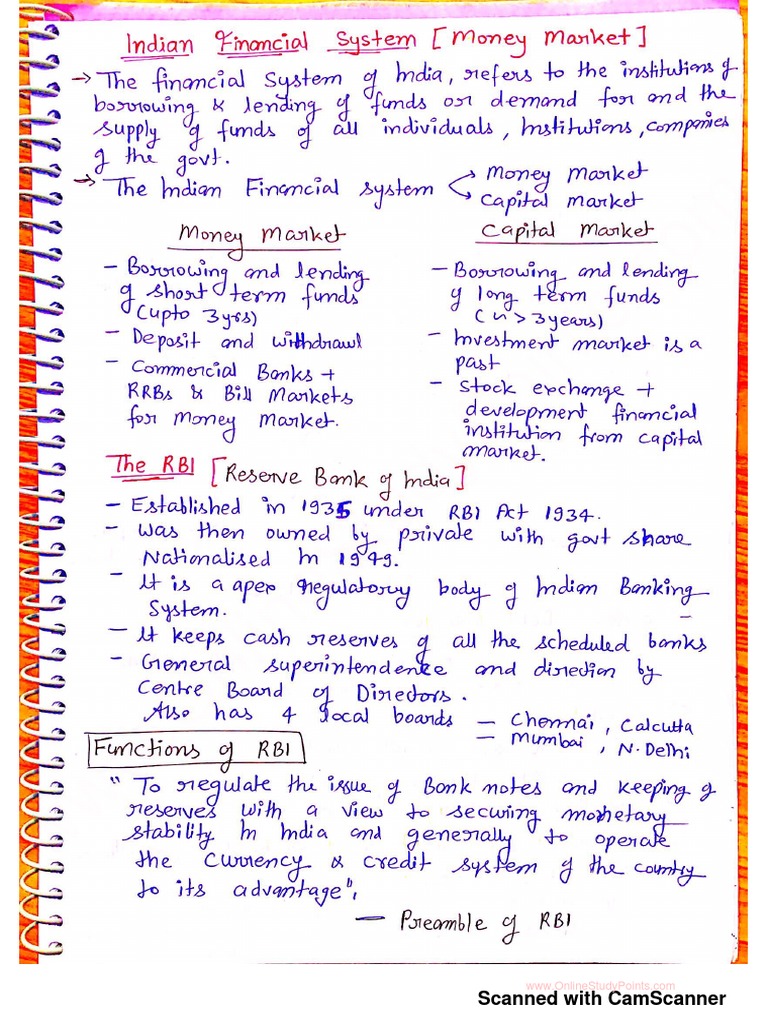 Indian Financial System [Money Market]
→ The financial System of India, refers to the institutions of
borrowing & lending of funds or demand for and the
supply of funds of all individuals, Institutions, companies
of the govt.
→ The Indian Financial system → Money Market
→ Capital market
Money Market
- Borrowing and lending
of short term funds
(upto 3yrs)
- Deposit and withdrawl
- Commercial Banks +
RRBs & Bill Markets
for Money Market.
Capital Market
- Borrowing and lending
of long term funds
( n > 3years)
- Investment market is a
past
- Stock exchange +
development financial
institution from capital
market.
The RBI [Reserve Bank of India]
- Established in 1935 under RBI Act 1934.
- was then owned by private with govt share
Nationalised in 1949.
- It is a apex regulatory body of Indian Banking
System.
- It keeps cash reserves of all the scheduled banks
- General superintendence and direction by
Centre Board of Directors.
Also has 4 local boards - Chennai, Calcutta
- Mumbai, N.Delhi
Functions of RBI
" To regulate the issue of Bank notes and keeping of
reserves with a view to securing monetary
stability in India and generally to operate
the currency & credit system of the country
to its advantage",
- Preamble of RBI
www.OnlineStudyPoints.com
Scanned with CamScanner